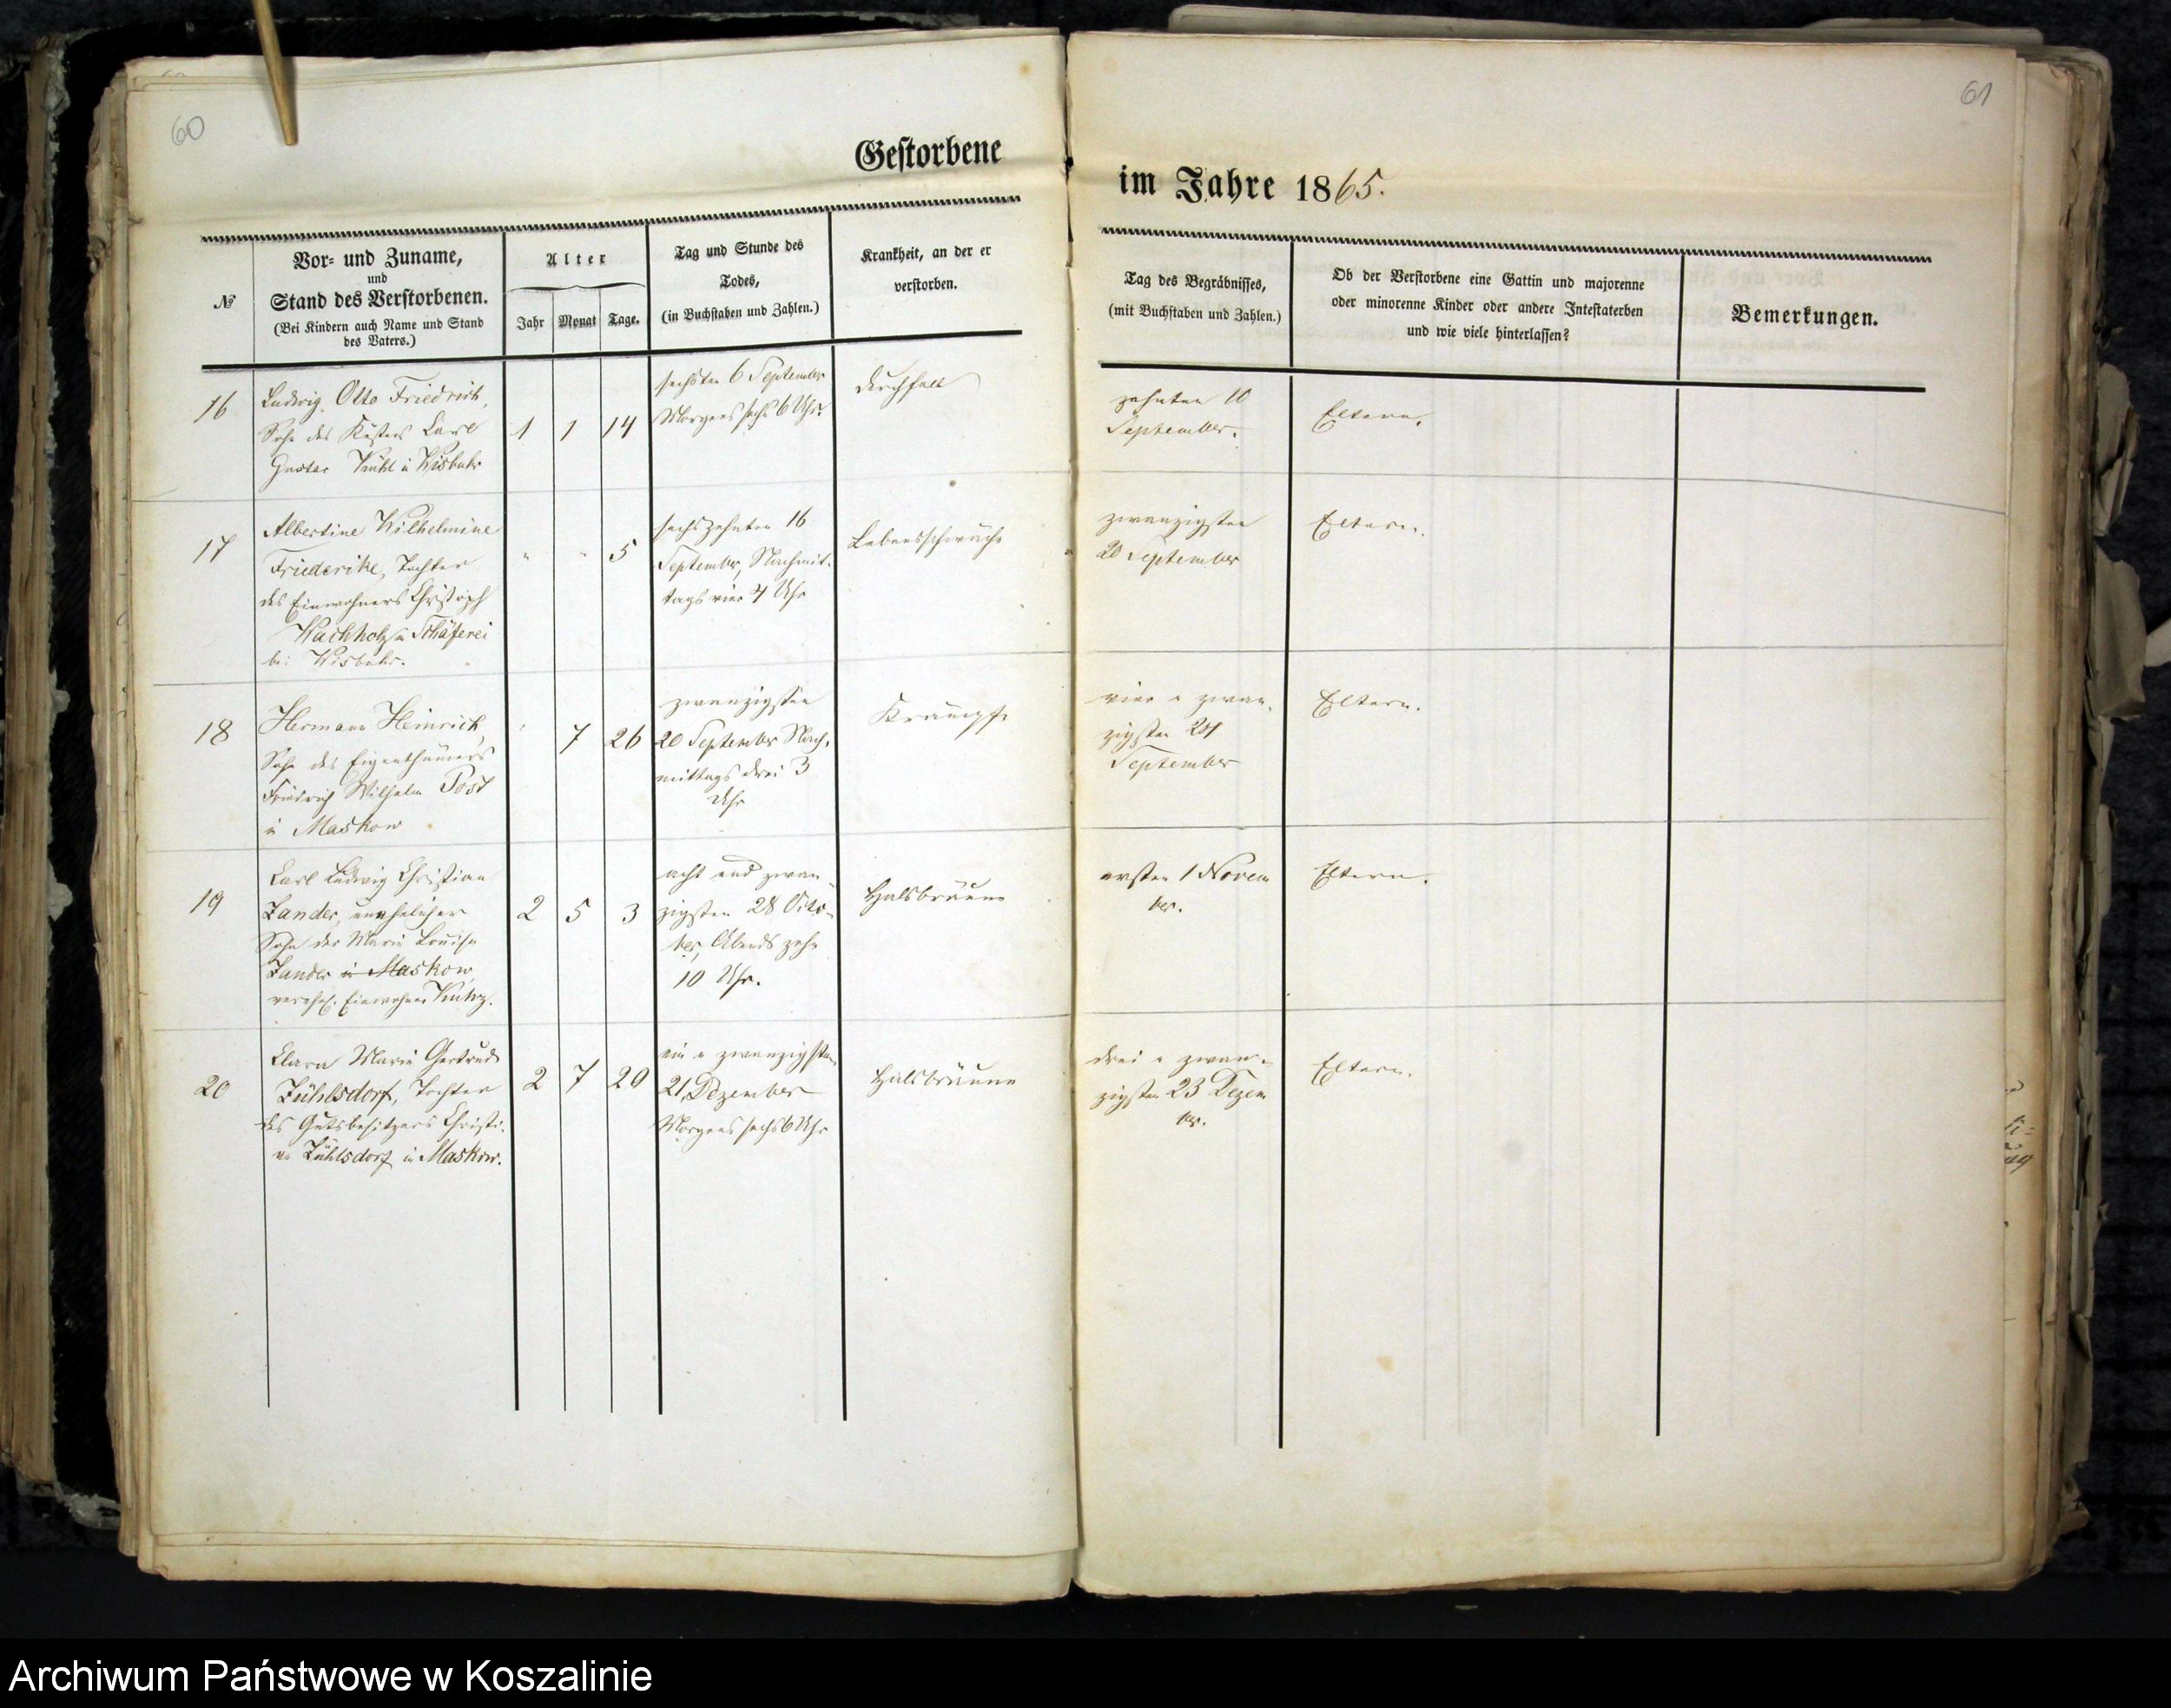 60
61
Gestorbene
im Jahre 1865.
№
Vor- und Zuname,
und
Stand des Verstorbenen.
(Bei Kindern auch Name und Stand
des Vaters.)
Alter
Jahr Monat Tage.
Tag und Stunde des
Todes,
(in Buchstaben und Zahlen.)
Krankheit, an der er
verstorben.
Tag des Begräbnisses,
(mit Buchstaben und Zahlen.)
Ob der Verstorbene eine Gattin und majorenne
oder minorenne Kinder oder andere Intestaterben
und wie viele hinterlassen?
Bemerkungen.
16
Ludwig Otto Friedrich,
Sohn des Küsters Carl
Gustav in Wisbuhr
1 1 14
sechsten 6 September
Morgens sechs 6 Uhr.
Durchfall
zehnten 10
September.
Eltern.
17
Albertine Wilhelmine
Friederike, Tochter
des Einwohners Christoph
Wachholz in Schäferei
bei Wisbuhr.
" " 5
sechszehnten 16
September, Nachmit-
tags vier 4 Uhr
Lebensschwäche
zwanzigsten
20 September
Eltern.
18
Hermann Heinrich,
Sohn des Eigenthümers
Friedrich Wilhelm Post
in Maskow
" 7 26
zwanzigsten
20 September Nach-
mittags drei 3
Uhr
Krämpfe
vier u zwan-
zigsten 24
September
Eltern.
19
Carl Ludwig Christian
Zander, unehelicher
Sohn der Marie Louise
Zander in Maskow
verehel. Einwohner
2 5 3
acht und zwan
zigsten 28 Octo-
ber, Abends zehn
10 Uhr.
Halsbräune
ersten 1 Novem
ber.
Eltern.
20
Clara Marie Gertrud
Zühlsdorf, Tochter
des Gutsbesitzers Christi-
an Zühlsdorf in Maskow.
2 7 20
ein u zwanzigsten
21 Dezember
Morgens sechs 6 Uhr
Halsbräune
drei u zwan-
zigsten 23 Dezem
ber.
Eltern.
Archiwum Państwowe w Koszalinie